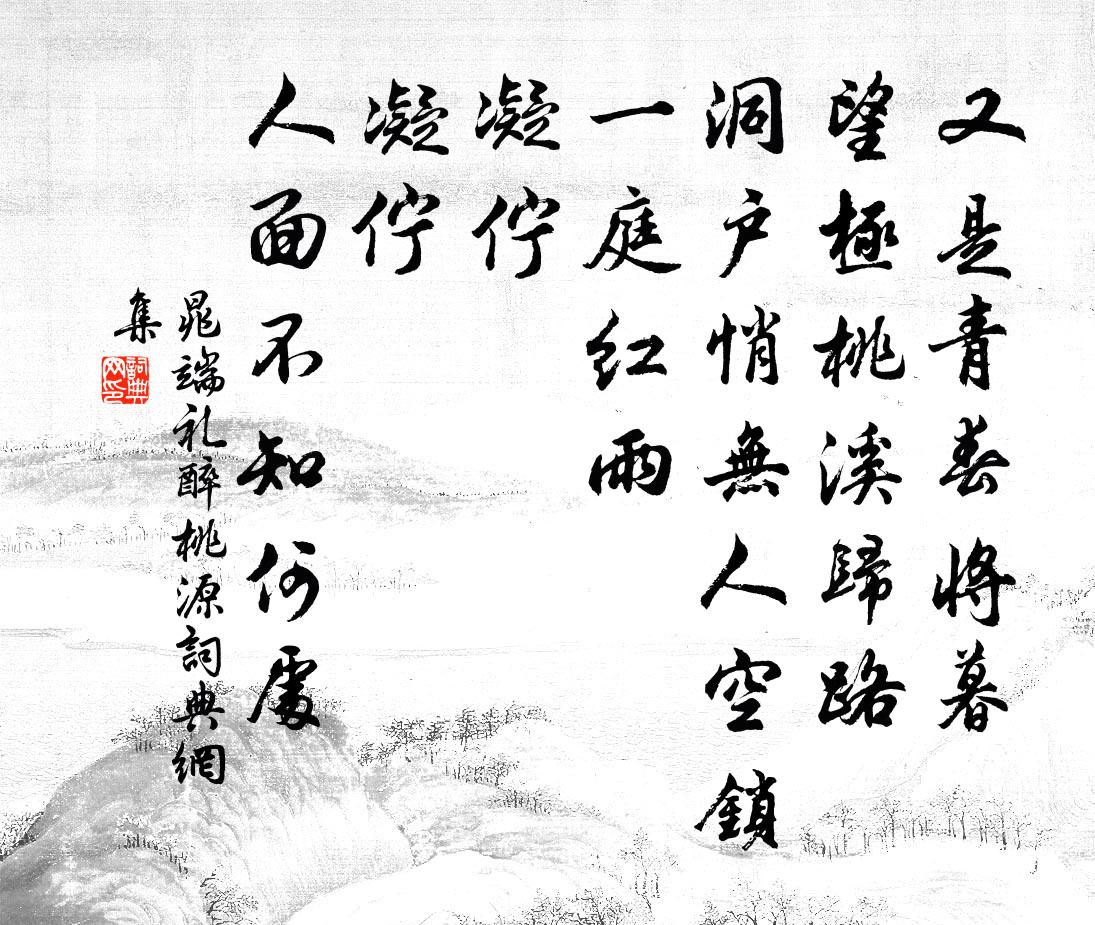 又是青春將暮
望極桃溪歸路
洞户悄無人空鎖
一庭红雨
凝佇
凝佇
人面不知何處
晁端礼醉桃源詞典網
集
詞典網印